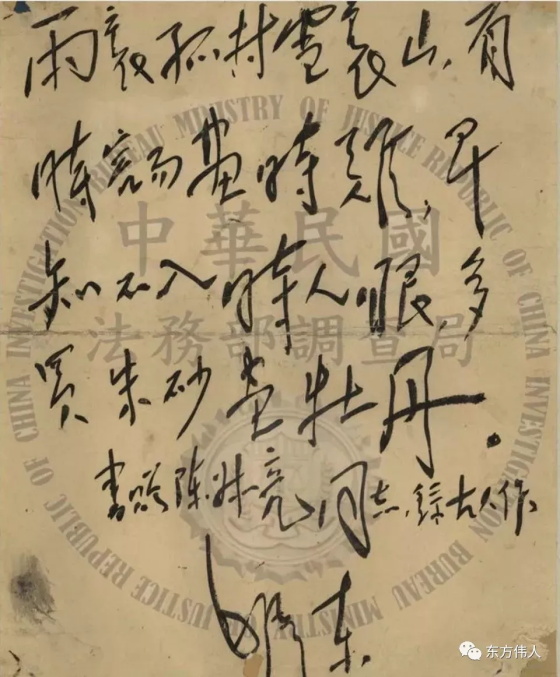 雨裏孤村雪裏山,看
時容易畫時難,早
知不入時人眼,多
買朱砂畫牡丹。
書贈陳亮同志,錄古人作。
毛澤东
中華民國
法務部調查局
INVESTIGATION BUREAU MINISTRY OF JUSTICE REPUBLIC OF CHINA INVESTIGATION BUREAU MINISTRY OF JUSTICE REPUBLIC OF CHINA
东方伟人